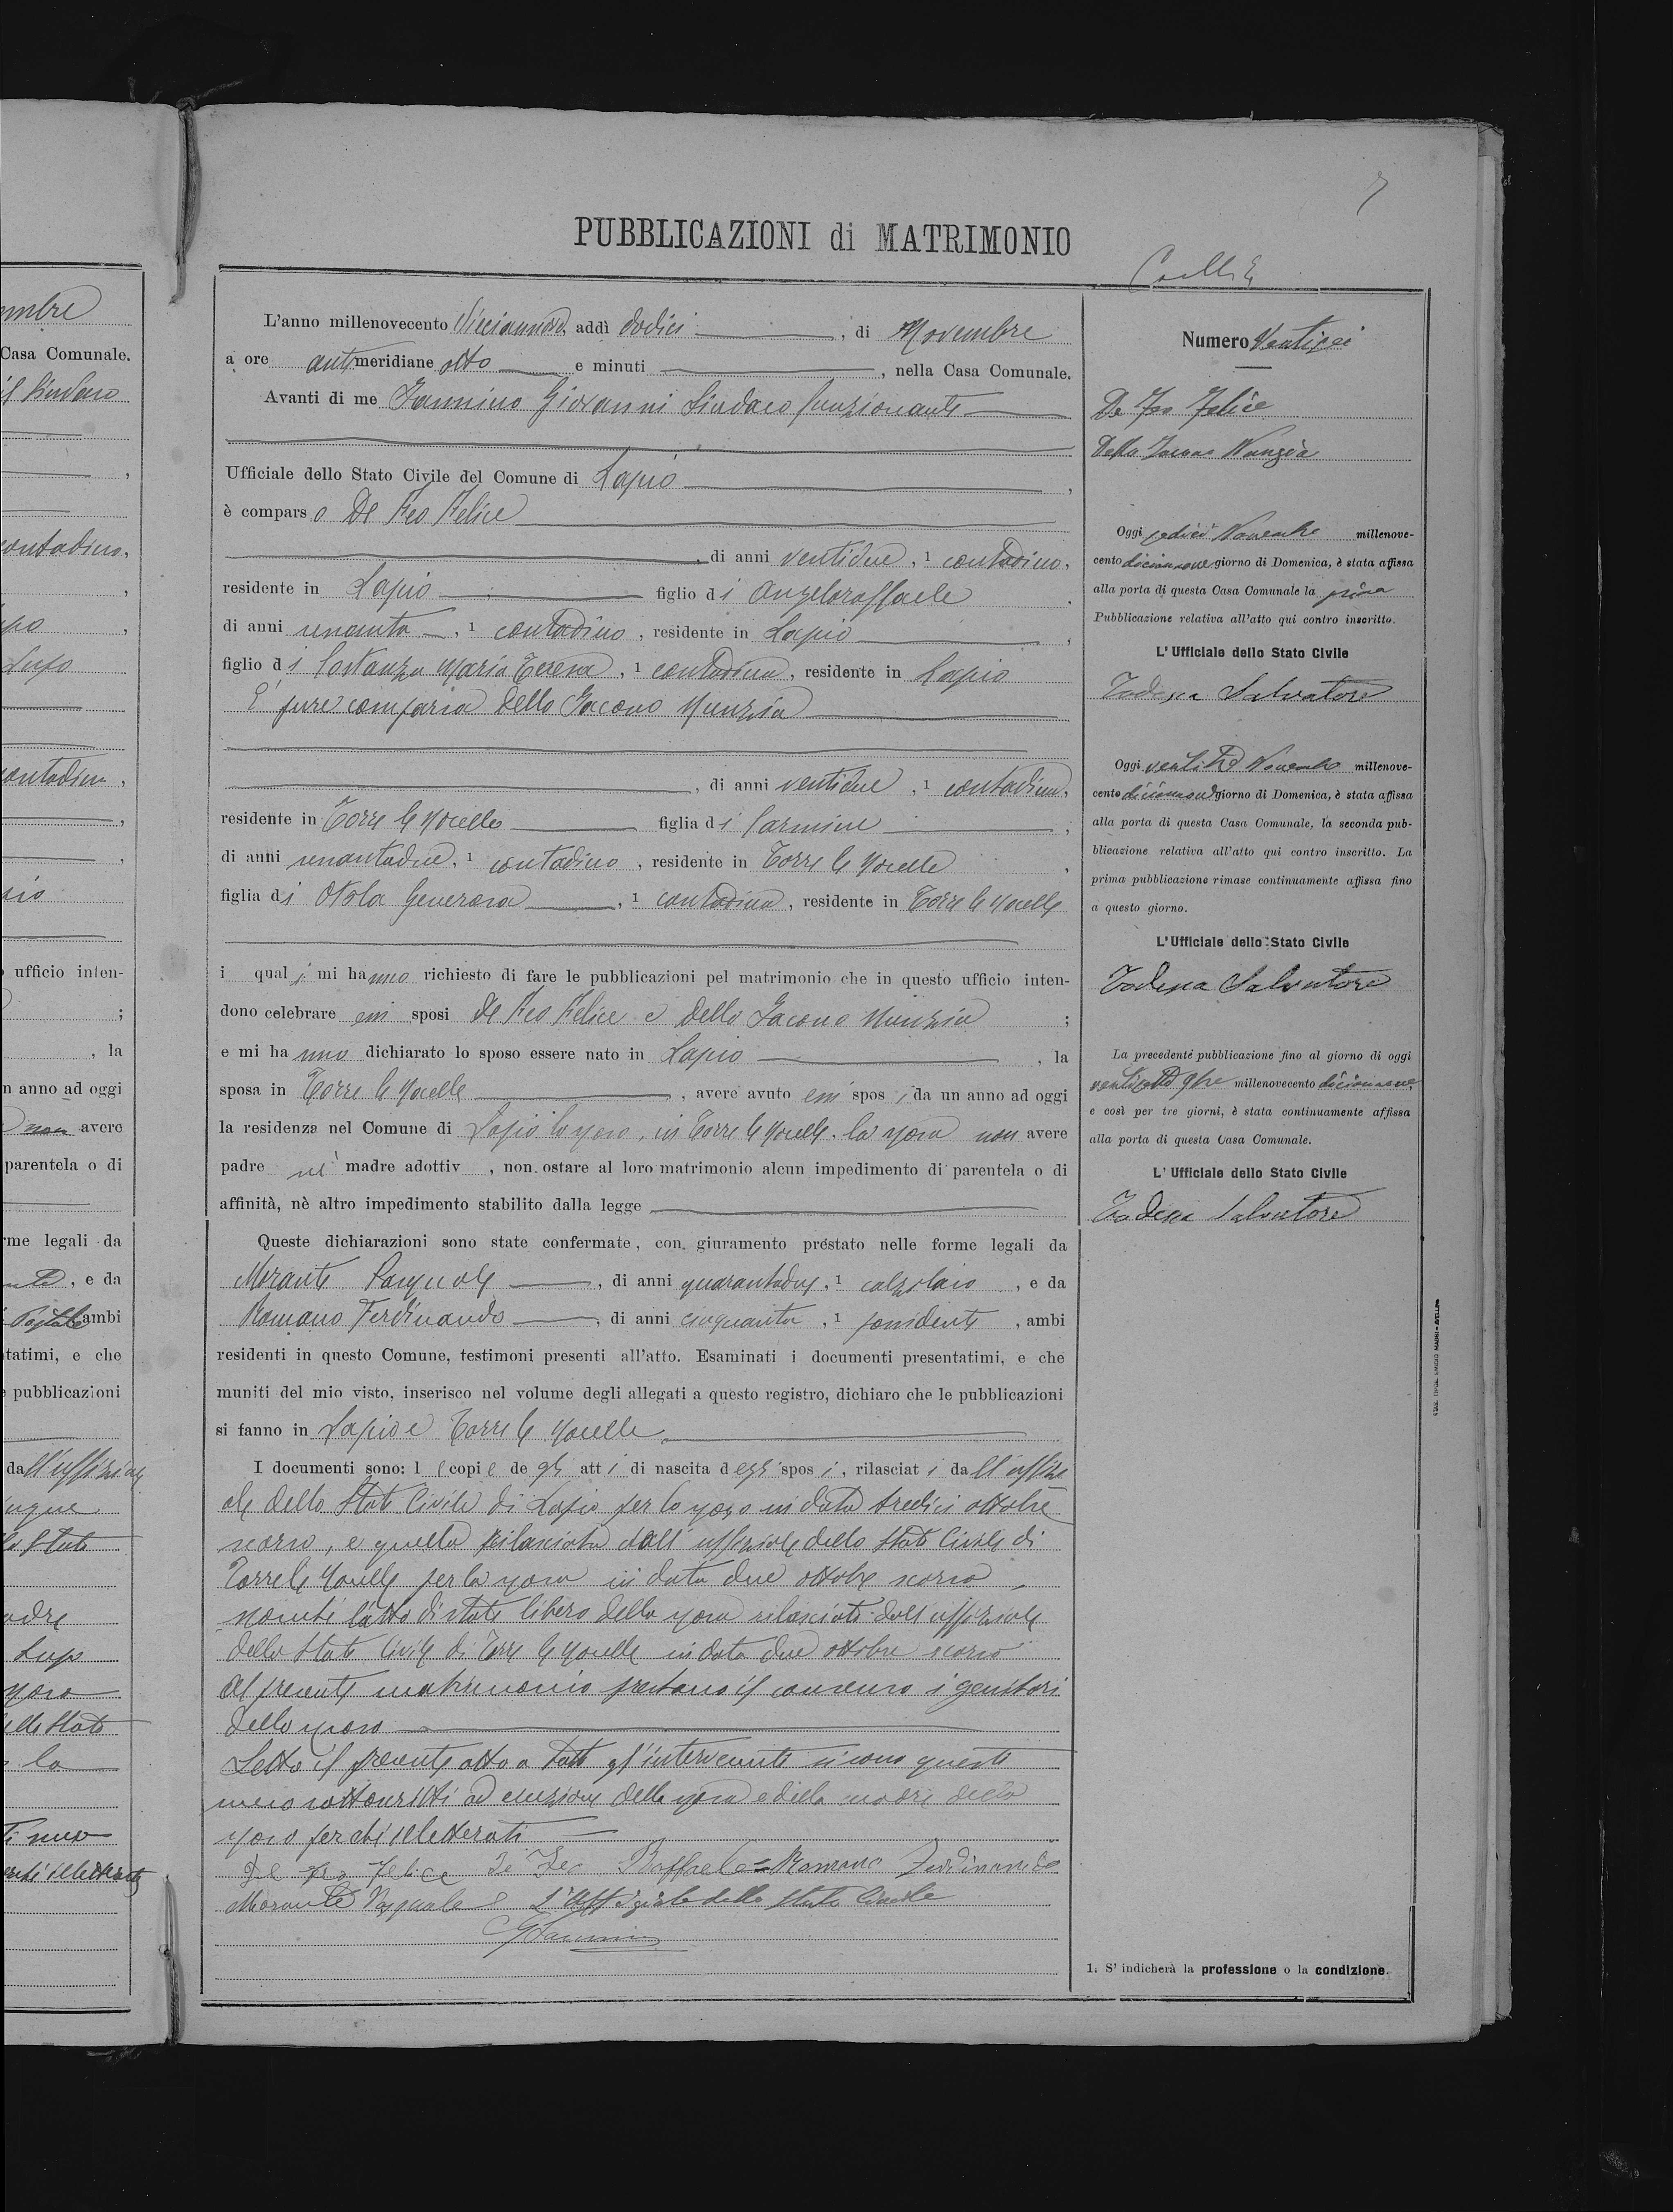 7
PUBBLICAZIONI di MATRIMONIO
L'anno millenovecento diciannove addì dodici, di Novembre
a ore antimeridiane otto e minuti, nella Casa Comunale.
Avanti di me Iannino Giovanni Sindaco funzionante
Ufficiale dello Stato Civile del Comune di Lapio,
è comparso De Feo Felice
, di anni ventidue, 1 contadino,
residente in Lapio figlio di Angeloraffaele
di anni, 1 contadino, residente in Lapio,
figlio di Costanza Maria Teresa, 1 contadina, residente in Lapio
È pure comparsa Dello Iacono Nunzia
, di anni ventidue, 1 contadina,
residente in Torre le Nocelle figlia di Carmine;
di anni, 1 contadino, residente in Torre le Nocelle,
figlia di Generosa, 1 contadina, residente in Torre le Nocelle
i quali mi hanno richiesto di fare le pubblicazioni pel matrimonio che in questo ufficio inten-
dono celebrare essi sposi De Feo Felice e Dello Iacono Nunzia;
e mi hanno dichiarato lo sposo essere nato in Lapio, la
sposa in Torre le Nocelle, avere avuto essi sposi da un anno ad oggi
la residenza nel Comune di Lapio lo sposo, in Torre le Nocelle la sposa non avere
padre nè madre adottiv, non ostare al loro matrimonio alcun impedimento di parentela o di
affinità, nè altro impedimento stabilito dalla legge
Queste dichiarazioni sono state confermate, con giuramento prestato nelle forme legali da
Morante Pasquale, di anni quarantadue, 1 calzolaio, e da
Romano Ferdinando, di anni cinquanta, 1 possidente, ambi
residenti in questo Comune, testimoni presenti all'atto. Esaminati i documenti presentatimi, e che
muniti del mio visto, inserisco nel volume degli allegati a questo registro, dichiaro che le pubblicazioni
si fanno in Lapio e Torre le Nocelle
I documenti sono: le copie degli atti di nascita degli sposi, rilasciati dall'uffizi
ale dello Stato Civile di Lapio per lo sposo in data tredici ottobre
scorso, e quella rilasciata dall'uffiziale dello Stato Civile di
Torre le Nocelle per la sposa in data due ottobre scorso,
l'atto di stato libero della sposa rilasciato dall'uffiziale
dello Stato Civile di Torre le Nocelle in data due ottobre scorso
Al presente matrimonio prestano il consenso i genitori
dello sposo
Letto il presente atto a tutti gl'intervenuti si sono questi
meco sottoscritti ad eccezione della sposa e della madre dello
sposo perchè illetterati
De Feo Felice De Feo Raffaele = Romano Ferdinando
Morante Pasquale L'Uffiziale dello Stato Civile
GIannino
Numero Ventisei
De Feo Felice
Dello Iacono Nunzia
Oggi sedici Novembre millenove-
cento diciannove giorno di Domenica, è stata affissa
alla porta di questa Casa Comunale la prima
Pubblicazione relativa all'atto qui contro inscritto.
L'Ufficiale dello Stato Civile
Salvatore
Oggi ventitre Novembre millenove-
cento diciannove giorno di Domenica, è stata affissa
alla porta di questa Casa Comunale, la seconda pub-
blicazione relativa all'atto qui contro inscritto. La
prima pubblicazione rimase continuamente affissa fino
a questo giorno.
L'Ufficiale dello Stato Civile
Salvatore
La precedente pubblicazione fino al giorno di oggi
9bre millenovecento diciannove,
e così per tre giorni, è stata continuamente affissa
alla porta di questa Casa Comunale.
L'Ufficiale dello Stato Civile
Salvatore
1. S'indicherà la professione o la condizione.